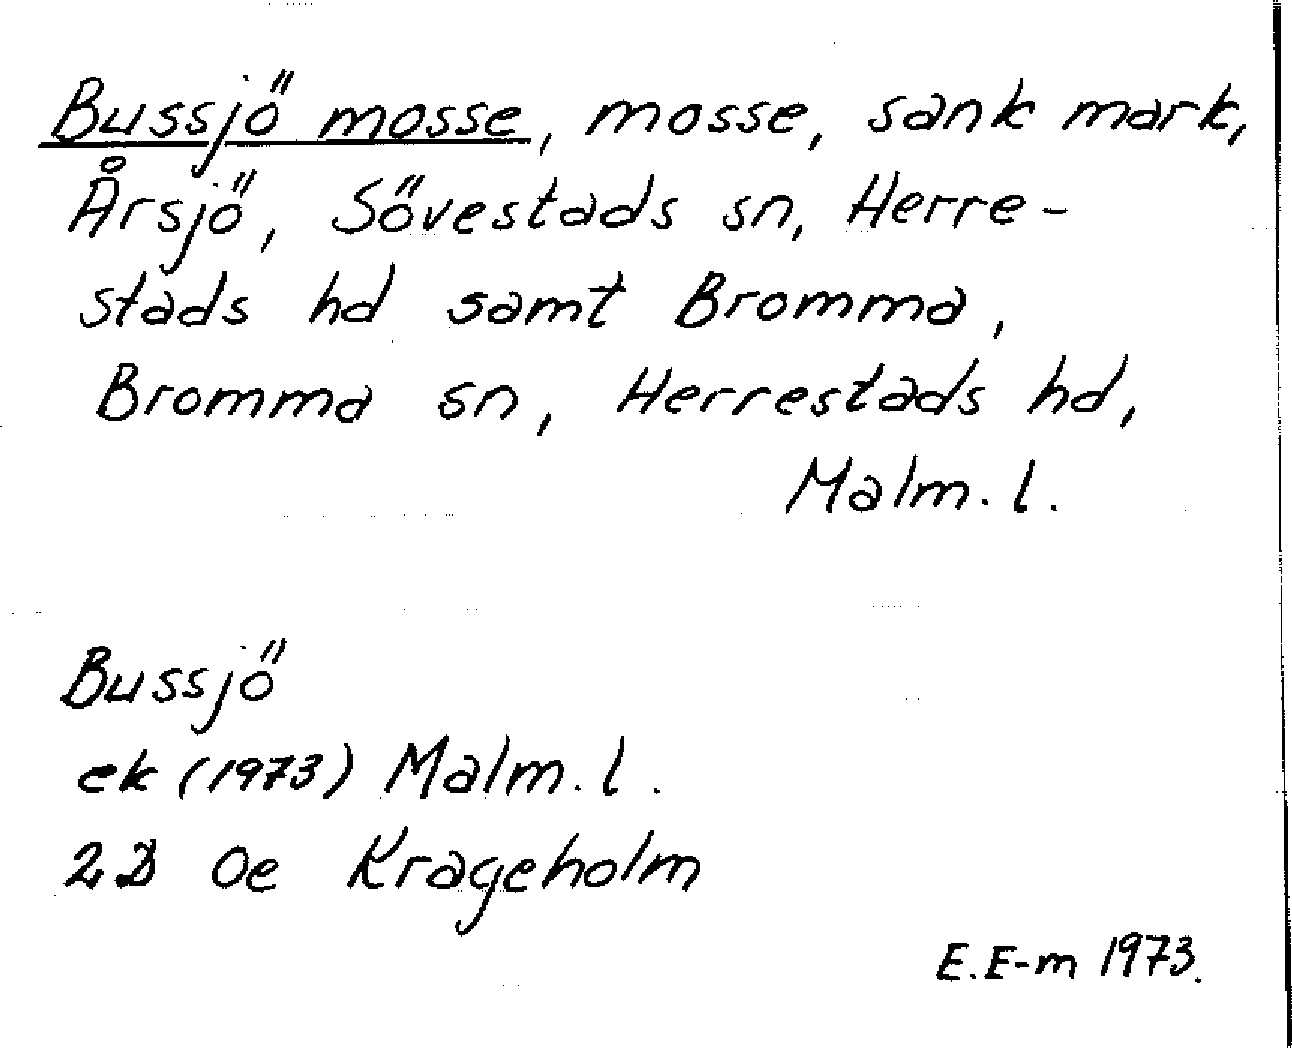 Bussjö mosse, mosse, sank mark,
Årsjö, Sövestads sn, Herre-
stads hd samt Bromma,
Bromma sn, Herrestads hd,
Malm. l.
Bussjö
ek (1973) Malm. l.
2D 0e Krageholm
E. E-m 1973.